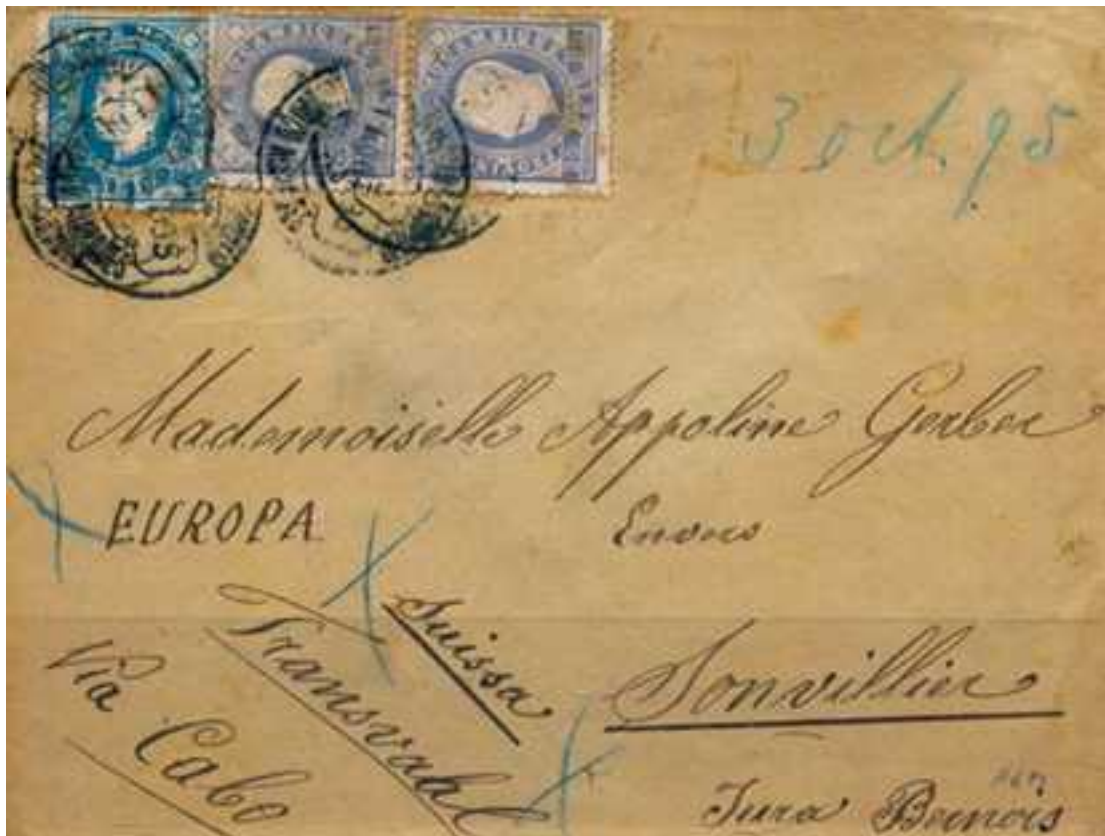 3 oct. 95
Mademoiselle Appoline Gerber
EUROPA
Envers
Suissa
Transvahl
Via Cabo
Sonvillier
Jura Bernois